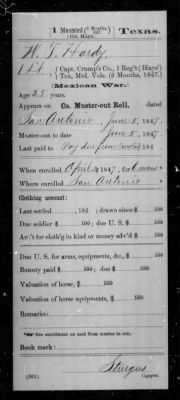 1 Mounted (6 Months, 1847.) Texas.
(6 Mos., Inf.)
W. T. Hardy
Pvt, Capt. Crump's Co., 1 Reg't (Hays')
Tex. Mtd. Vols. (6 Months, 1847.)
Mexican War.
Age 25 years.
Appears on Co. Muster-out Roll, dated
San Antonio, June 5, 1847.
Muster-out to date June 5, 1847.
Last paid to Pay due from
When enrolled April, 1847, 
Where enrolled San Antonio
Clothing account:
Last settled 184 ; drawn since $ 100
Due soldier $ 100; due U. S. $ 100
Am't for cloth'g in kind or money adv'd $ 100
Due U. S. for arms, equipments, &c., $ 100
Bounty paid $ 100; due $ 100
Valuation of horse, $ 100
Valuation of horse equipments, $ 100
Remarks:
*See enrollment on card from muster-in roll.
Book mark:
Sturgus
(861) Copyist.